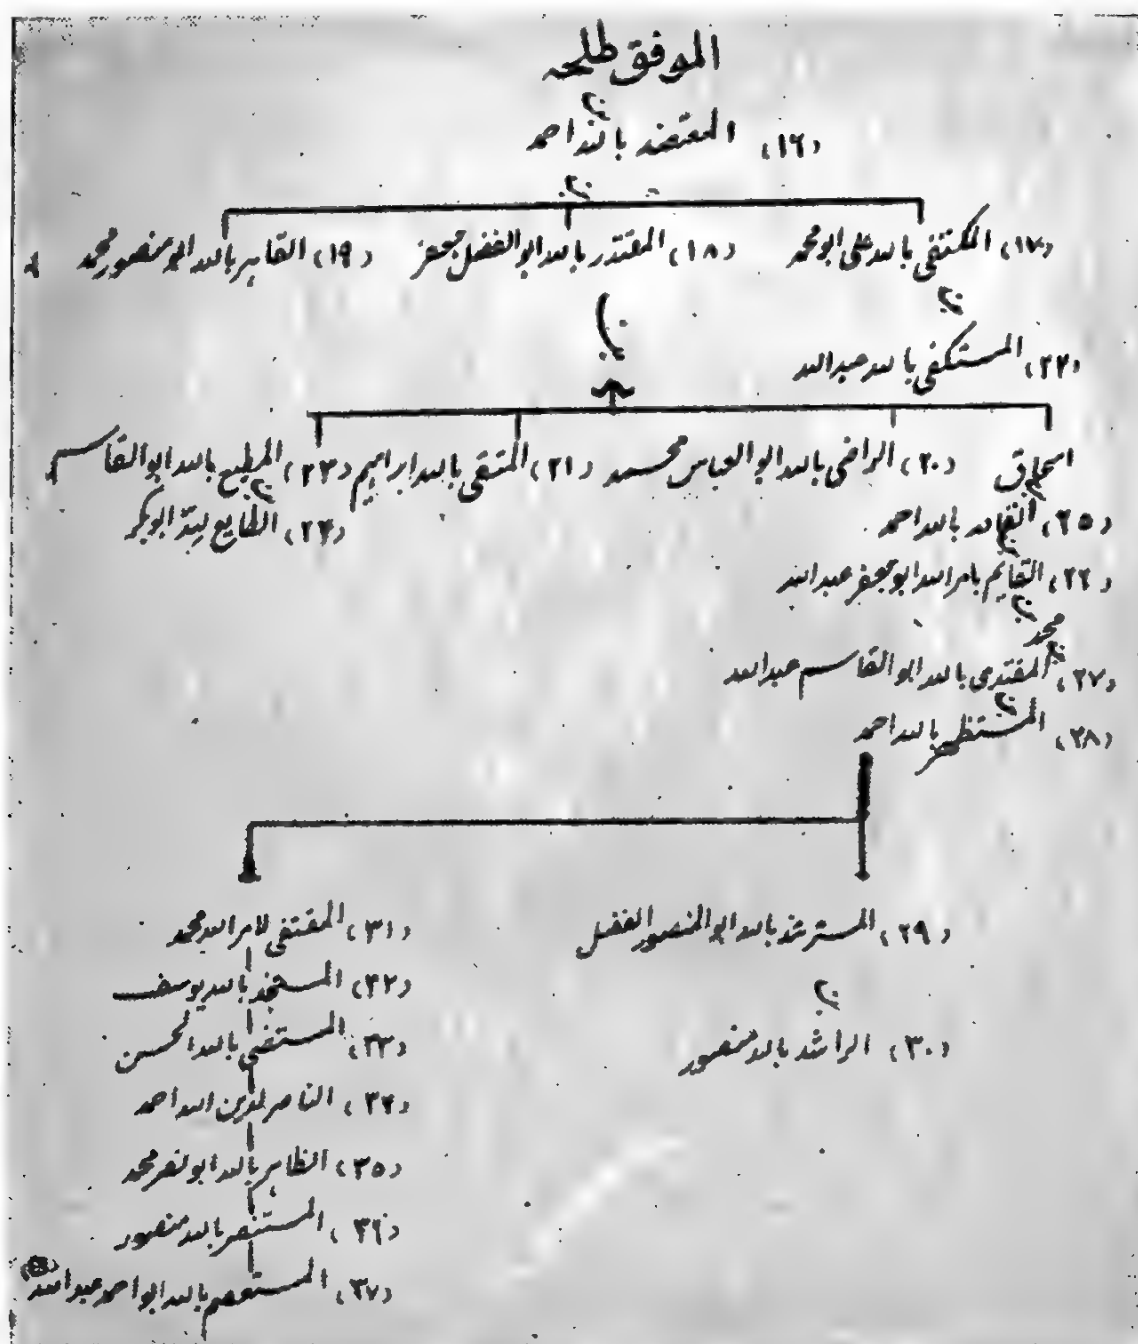 الموفق طلحہ
(۱۶) المعتضد باللہ احمد
(۱۷) المکتفی باللہ علی ابو محمد (۱۸) المقتدر باللہ ابو الفضل جعفر (۱۹) القاہر باللہ ابو منصور محمد
(۲۲) المستکفی باللہ عبداللہ
اسحاق (۲۰) الراضی باللہ ابو العباس محمد (۲۱) المتقی باللہ ابراہیم (۲۳) المطیع باللہ ابو القاسم
(۲۵) القادر باللہ احمد (۲۴) الطایع للہ ابوبکر
(۲۶) القایم بامر اللہ ابو جعفر عبداللہ
محمد
(۲۷) المقتدی باللہ ابو القاسم عبداللہ
(۲۸) المستظہر باللہ احمد
(۲۹) المسترشد باللہ ابو المنصور الفضل (۳۱) المقتفی لامر اللہ محمد
(۳۲) المستنجد باللہ یوسف
(۳۰) الراشد باللہ منصور (۳۳) المستضی باللہ الحسن
(۳۴) الناصر لدین اللہ احمد
(۳۵) الظاہر باللہ ابو نصر محمد
(۳۶) المستنصر باللہ منصور
(۳۷) المستعصم باللہ ابو احمد عبداللہ